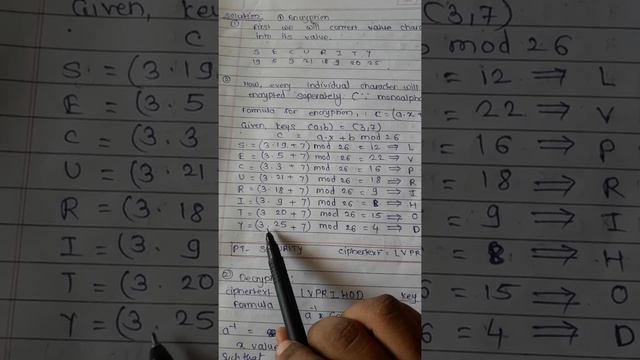 Solution: ① Encryption
① First we will convert value
into its value.
S E C U R I T Y
19 5 3 21 18 9 20 25
② Now, every individual character will
encrypted seperately
formula for encryption,
Given, keys (a,b) = (3,7)
C = a.x + b mod 26
S = (3.19 + 7) mod 26 = 12 ⇒ L
E = (3.5 + 7) mod 26 = 22 ⇒ V
C = (3.3 + 7) mod 26 = 16 ⇒ P
U = (3.21 + 7) mod 26 = 18 ⇒ R
R = (3.18 + 7) mod 26 = 9 ⇒ I
I = (3.9 + 7) mod 26 = 8 ⇒ H
T = (3 20 + 7) mod 26 = 15 ⇒ O
Y = (3. 25 + 7) mod 26 = 4 ⇒ D
PT- SECURITY ciphertext = LVPR
② Decryp
ciphertext LVPRIHOD key
formula
a⁻¹ =
x value
such that
Given, key
C
S = (3.19
E = (3.5
C = (3.3
U = (3.21
R = (3.18
I = (3. 9
T = (3. 20
Y = (3. 25
(3,7)
mod 26
= 12 ⇒ L
= 22 ⇒ V
= 16 ⇒ P
= 18 ⇒ R
= 9 ⇒ I
= 8 ⇒ H
= 15 ⇒ O
6 = 4 ⇒ D